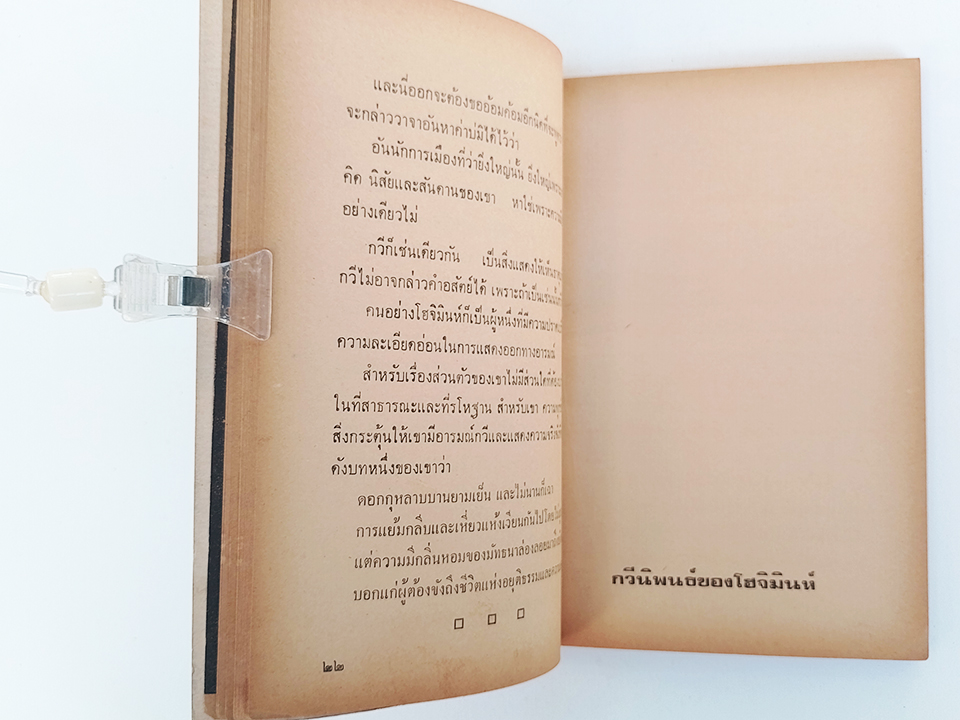 และนี่ออกจะต้องขออ้อมค้อมอีกนิดที่จะ
จะกล่าววาจาอันหาค่าบ่มิได้ไว้ว่า
อันนักการเมืองที่ว่ายิ่งใหญ่นั้น ยิ่งใหญ่เพราะ
คิด นิสัยและสันดานของเขา หาใช่เพราะความ
อย่างเดียวไม่
กวีก็เช่นเดียวกัน เป็นสิ่งแสดงให้เห็น
กวีไม่อาจกล่าวคำอสัตย์ได้ เพราะถ้าเป็นเช่นนั้น
คนอย่างโฮจิมินห์ก็เป็นผู้หนึ่งที่มีความ
ความละเอียดอ่อนในการแสดงออกทางอารมณ์
สำหรับเรื่องส่วนตัวของเขาไม่มีส่วนใดที่
ในที่สาธารณะและที่รโหฐาน สำหรับเขา ความ
สิ่งกระตุ้นให้เขามีอารมณ์กวีและแสดงความจริง
ดังบทหนึ่งของเขาว่า
ดอกกุหลาบบานยามเย็น และไม่นานก็เฉา
การแย้มกลีบและเหี่ยวแห้งเจียนกันไปโดย
แต่ความมีกลิ่นหอมของมัทธนาล่องลอย
บอกแก่ผู้ต้องขังถึงชีวิตแห่งอยุติธรรมและ
๒๒
กวีนิพนธ์ของโฮจิมินห์